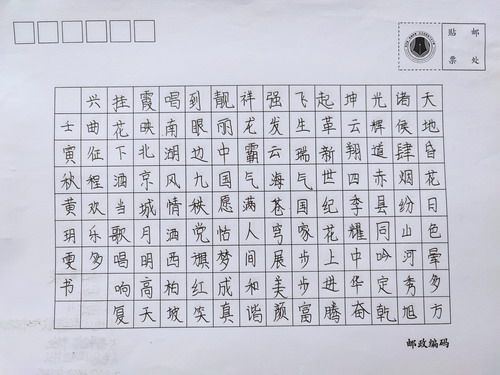 贴 邮
票 处
天地昏花日色晕多方
诸侯肆烟纷山河秀旭
光辉道赤县同吟定乾
坤云翔四季耀中华奋
起革新世纪花上进腾
飞生瑞气国家步步富
强发云海苍穹展美颜
祥龙霸气满人间和谐
靓丽中国愿怙梦成真
到眼边九秩党旗红笑
唱南湖风情洒西柏坡
霞映北京城月明高天
挂花下酒当歌唱响复
兴曲征程欢乐多
士寅秋黄玥更书
邮政编码